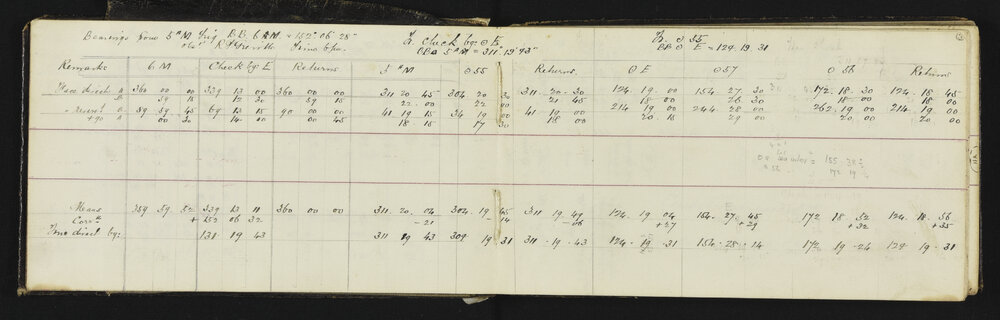 Bearings from 5"M Trig B.B. 6"M = 152° 06' 28"
To Check bg: O E.
OBO 5"M = 311.19'43"
To O 55
BB O E = 124.19.31
Remarks 6 M Check bg: E Returns 5 "M O 55 Returns. O E O 57 O 56 Returns
Face direct A 360 00 00 339 13 00 360 00 00 311 20 45 304 20 30 311 . 20 . 30 124 . 19 . 00 154 . 27 . 30 172 . 18 . 30 124 . 18 . 45
B 59 15 12 30 59 15 22 . 00 22 00 21 45 18 . 00 26 30 18 . 00 18 00
" revers'l A 59 59 45 69 13 15 90 00 00 41 19 15 34 19 00 41 . 19 . 00 214 19 00 244 . 28 . 00 262 . 19 . 00 214 . 19 00
+90 B 00 30 14 00 00 45 18 15 17 30 18 00 20 . 15 29 00 20 . 00 20 00
155 . 38
172 19
Means 359 59 52 339 13 11 360 00 00 311 . 20 . 04 304 . 19 45 311 . 19 49 124 . 19 . 04 154 . 27 . 45 172 18 52 124 . 18 . 56
Corrn + 152 06 32 - 21 - 14 - 06 + 27 + 29 + 32 + 35
True direct bg: 131 19 43 311 19 43 304 19 31 311 . 19 . 43 124 . 19 . 31 154 . 28 . 14 172 . 19 . 24 124 . 19 . 31